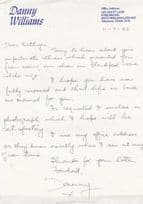 Danny
Williams
Office Address
11-7-92
Dear Kathryn,
Sorry to hear about your
unfortunate illness which prevented you
from seeing our show in Blackpool some
while ago.
I hope you have now
fully recovered and that life is back
to normal for you.
As requested I enclose a
photograph, which I hope will be
satisfactory.
I use my office address
as they know exactly where I am at any
given time.
Thanks for your letter.
Fondest,
Danny
x